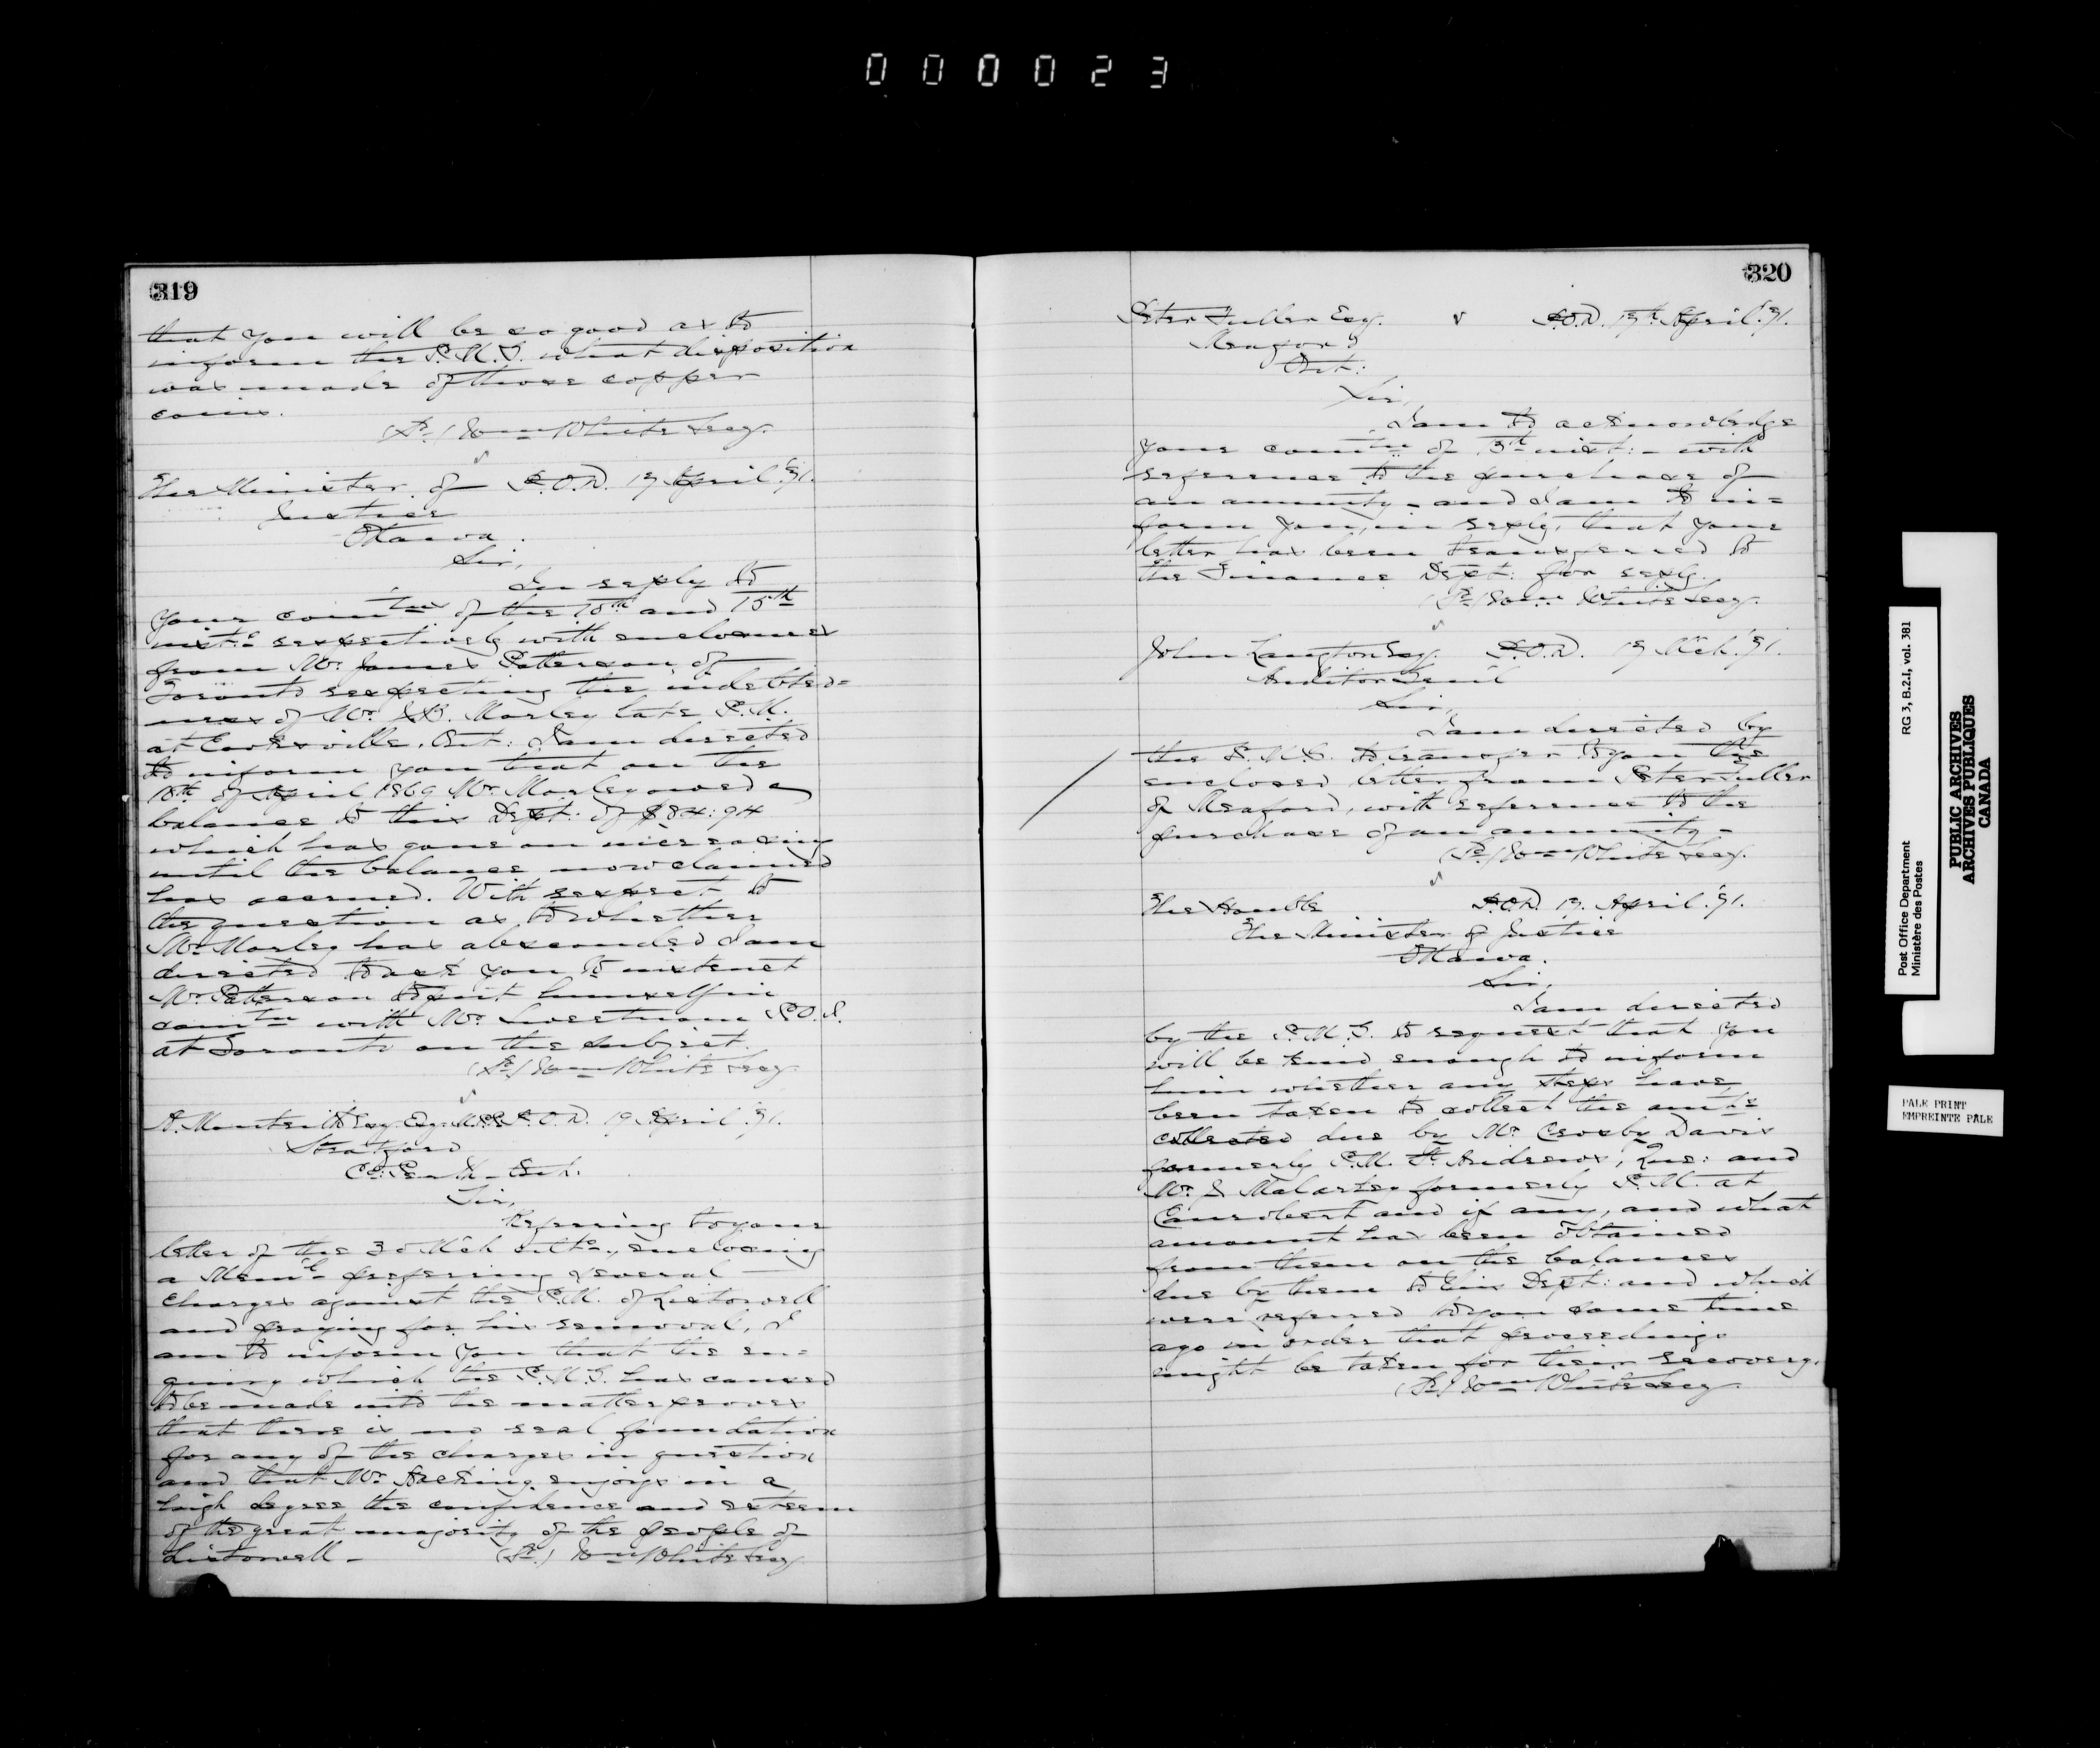 000023
319
that you will be so good as to
inform the P.M.G. what disposition
was made of those copper
coins.
(Sd.) Wm White Secy.
The Minister of P.O.D. 19 April '71.
Justice
Ottawa.
Sir,
In reply to
your comtns of the 10th and 15th
inst: respectively with enclosures
from Mr. James Patterson of
Toronto respecting the indebted=
ness of Mr. Morley late P.M.
at Cooksville, Ont: I am directed
to inform you that on the
10th of April 1869 Mr. Morley owed a
balance to this Dept: of $84:94
which has gone on increasing
until the balance now claimed
has accrued. With respect to
the question as to whether
Mr. Morley has absconded I am
directed to ask you to instruct
Mr. Patterson to put himself in
comtn with Mr. Sweetnam P.O.I.
at Toronto on the subject.
(Sd.) Wm White Secy.
A. Monteith Esq. P.O.D. 19 April '71.
Stratford
Co: Perth - Ont.
Sir,
Referring to your
letter of the 30 Mch ulto., enclosing
a Meml preferring several
charges against the P.M. of Listowell
and praying for his removal, I
am to inform you that the en=
quiry which the P.M.G. has caused
to be made into the matter proves
that there is no real foundation
for any of the charges in question
and that Mr. Hacking enjoys in a
high degree the confidence and esteem
of the great majority of the people of
Listowell -
(Sd.) Wm White Secy
320
Peter Fuller Esq. P.O.D. 19th April '71.
Meaford
Ont:
Sir,
I am to acknowledge
your comtn of 5th inst: - with
reference to the purchase of
an annuity - and I am to in=
form you, in reply, that your
letter has been transferred to
the Finance Dept: for reply.
(Sd.) Wm White Secy.
John Langton Esq. P.O.D. 19 Mch. '71.
Auditor Genl
Sir,
I am directed by
the P.M.G. to transfer to you the
enclosed letter from Peter Fuller
of Meaford, with reference to the
purchase of an annuity -
(Sd.) Wm White Secy.
The Honble P.O.D. 19 April '71.
The Minister of Justice
Ottawa.
Sir,
I am directed
by the P.M.G. to request that you
will be kind enough to inform
him whether any steps have
been taken to collect the amts
collected due by Mr. Crosby Davis
formerly P.M. St. Andrews, Que: and
Mr. J. formerly P.M. at
Canrobert and if any, and what
amount has been obtained
from them on the balances
due by them to this Dept: and which
were referred to you some time
ago in order that proceedings
might be taken for their recovery.
(Sd.) Wm White Secy.
Post Office Department
Ministère des Postes
RG 3, B.2.I, vol. 381
PUBLIC ARCHIVES
ARCHIVES PUBLIQUES
CANADA
PALE PRINT
EMPREINTE PALE